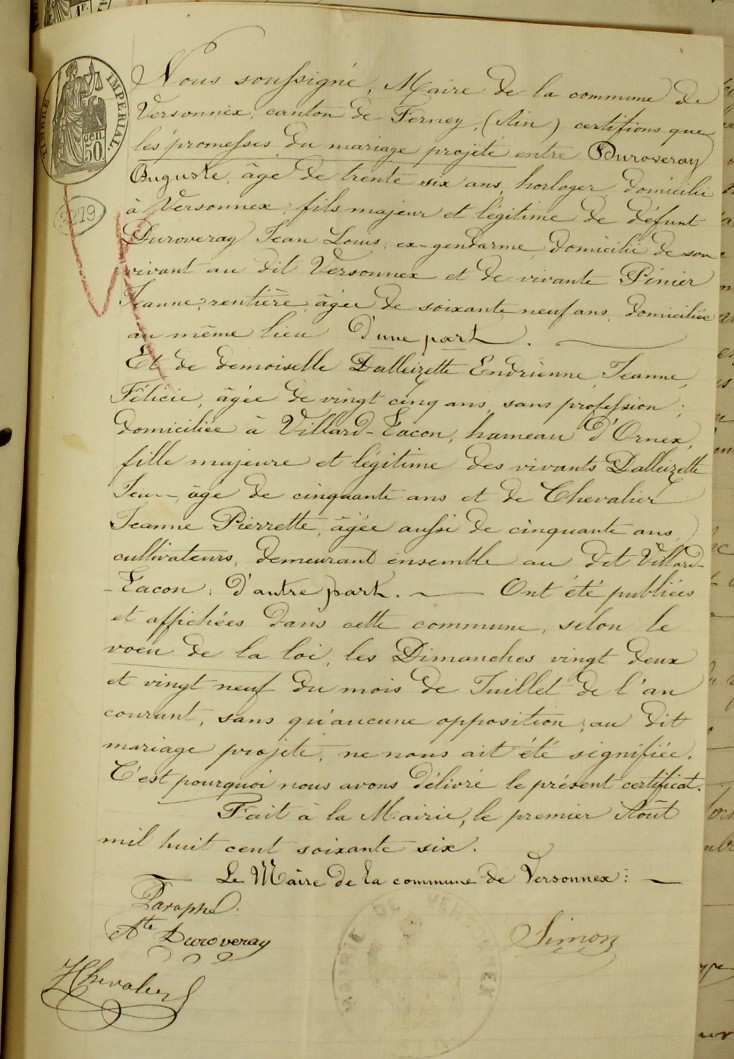 TIMBRE IMPERIAL
50 cen.
Nous soussigné, Maire de la commune de
Versonnex, canton de Ferney, (Ain) certifions que
les promesses du mariage projeté entre Duroveray
Auguste, âgé de trente six ans, horloger, domicilié
à Versonnex, fils majeur et légitime de défunt
Duroveray Jean Louis, ex-gendarme, domicilié de son
vivant au dit Versonnex et de vivante Pinier
Jeanne, rentière, âgée de soixante neuf ans, domiciliée
au même lieu d'une part.
Et de demoiselle Dalleizette Endrienne, Jeanne,
Félicie, âgée de vingt cinq ans, sans profession,
domiciliée à Villard-Tacon, hameau d'Ornex,
fille majeure et légitime des vivants Dalleizette
Jean âgé de cinquante ans et de Chevalier
Jeanne Pierrette, âgée aussi de cinquante ans,
cultivateurs, demeurant ensemble au dit Villard-
-Tacon; d'autre part. — Ont été publiées
et affichées dans cette commune, selon le
voeu de la loi, les Dimanches vingt deux
et vingt neuf du mois de Juillet de l'an
courant, sans qu'aucune opposition, au dit
mariage projeté, ne nous ait été signifiée.
C'est pourquoi nous avons délivré le présent certificat.
Fait à la Mairie, le premier Août
mil huit cent soixante six.
Le Maire de la commune de Versonnex: —
Paraphé.
Ate Duroveray
Simon
JChevalier
MAIRIE DE VERSONNEX